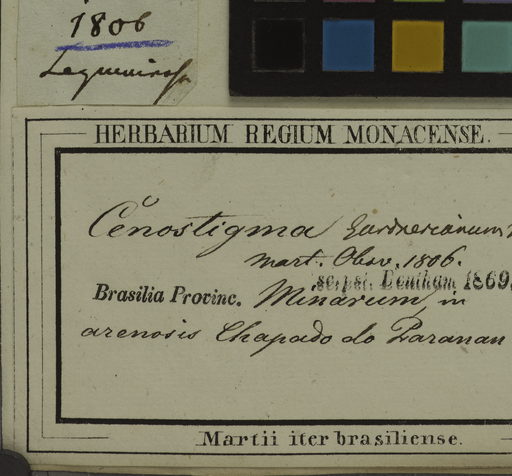 1806
HERBARIUM REGIUM MONACENSE.
Cenostigma Gardnerianum
Mart. Obsv. 1806.
scrpsi. Bentham 1869.
Brasilia Provinc. Minarum, in
arenosis Chapado do Paranan
Martii iter brasiliense.